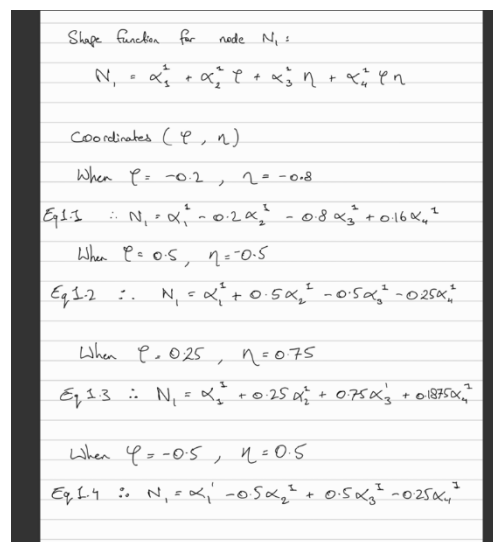 Shape function for node N₁ :
N₁ = α₁¹ + α₂¹ φ + α₃¹ η + α₄¹ φη
Coordinates (φ, η)
When φ = -0.2 , η = -0.8
Eq1.1 ∴ N₁ = α₁¹ - 0.2α₂¹ - 0.8α₃¹ + 0.16α₄¹
When φ = 0.5, η = -0.5
Eq 1.2 ∴ N₁ = α₁¹ + 0.5α₂¹ - 0.5α₃¹ - 0.25α₄¹
When φ = 0.25 , η = 0.75
Eq 1.3 ∴ N₁ = α₁¹ + 0.25α₂¹ + 0.75α₃¹ + 0.1875α₄¹
When φ = -0.5 , η = 0.5
Eq 1.4 ∴ N₁ = α₁¹ - 0.5α₂¹ + 0.5α₃¹ - 0.25α₄¹